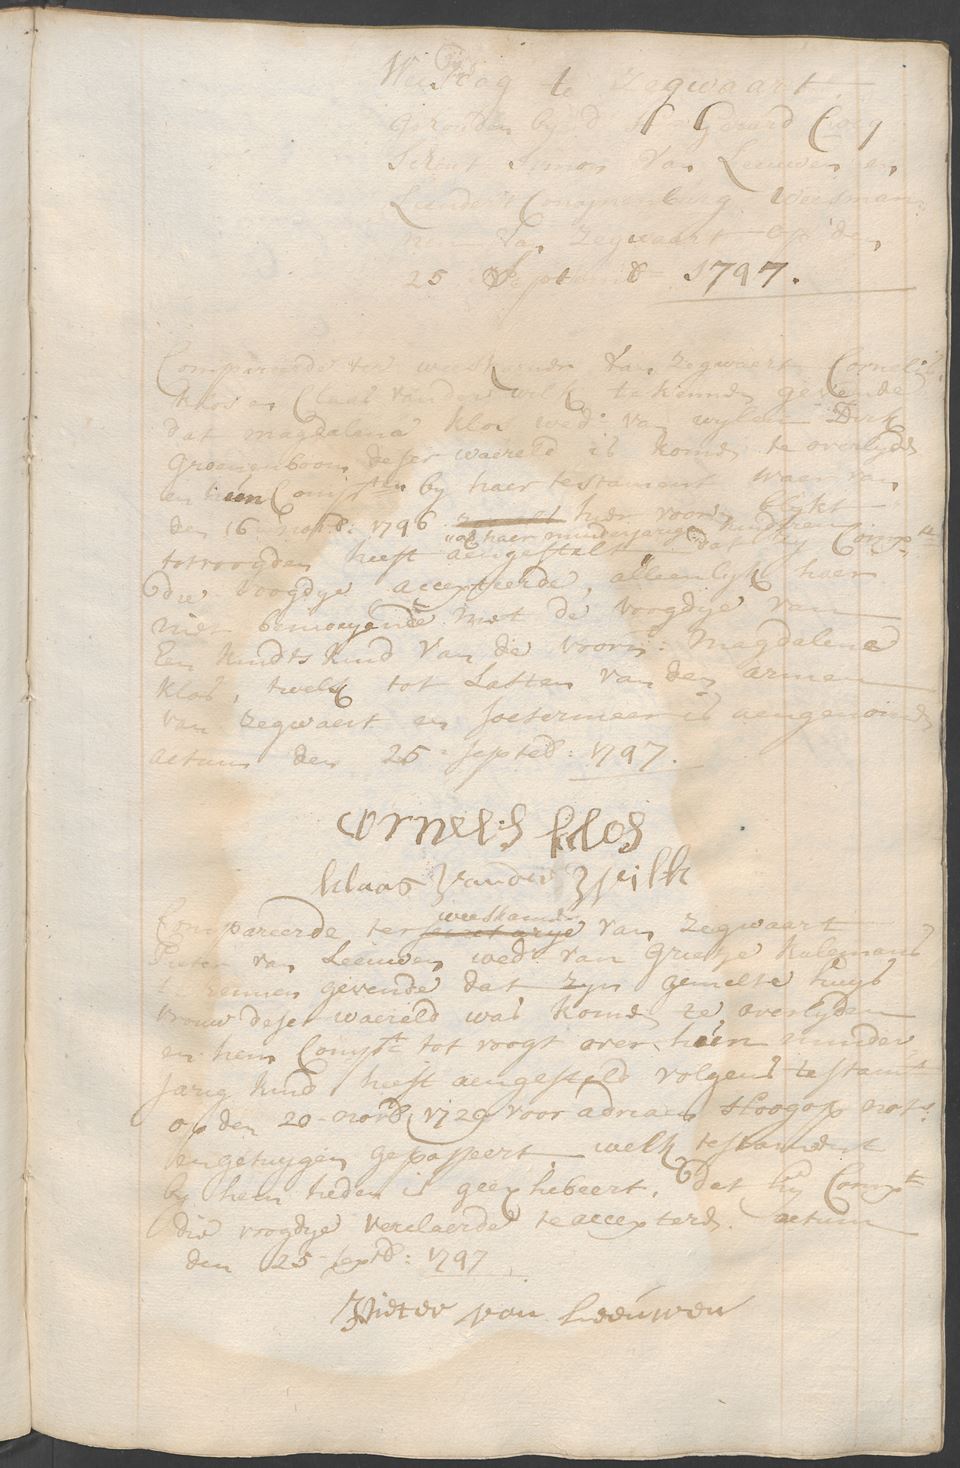 Weesdag te Zegwaart,
gehouden by d
Schout Simon Van Leeuwen en
Leendert Conijnenburg Weesman=
nen Van Zegwaart op den
25 Septemb 1797.
Compareerde ter weeskamer van Zegwaert Cornelis
Klos en Claas vander Wilk te kennen gevende
dat Magdalena Klos wed: van wylen Dirk
Groenenboom deser waereld is komen te overlyden
en hèm Compten by haer testament waer van
den 16 novb: 1796 hier voorn blykt
over haer minderjarige kinderen
tot voogden heeft aengestelt dat sy Compten
die Voogdye accepteerde, alleenlyk haer
niet bemoeyende met de Voogdye van
Een kindts kind Van de voorn: Magdalena
Klos, twelk tot Lasten van den armen
van Zegwaert en Soetermeer is aengenomen
actum den 25 septeb: 1797.
Cornelis Klos
klaas vander Wilk
weeskamer
Compareerde ter secretarye van Zegwaart
Pieter van Leeuwen wed: van Grietje Kulemans
te kennen gevende dat zyn gemelte huys
vrouw deser waereld was komen te overlyden
en hem Compt tot voogt over hèn minder
jarig kind heeft aengesteld volgens testamt
op den 20 novb 1729 voor adriaen Hoogop nots
en getuygen gepasseert, welk testament
by hem heden is geexhibeert, dat hy Compt
die voogdye verclaerde te accepteren. actum
den 25 septb: 1797
Pieter van Leeuwen